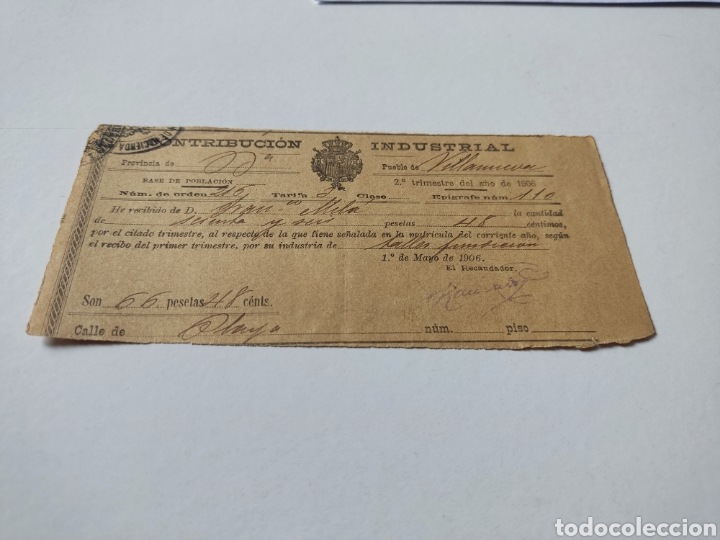 CIENDA
CONTRIBUCIÓN INDUSTRIAL
Provincia de Pueblo de Villanueva
BASE DE POBLACIÓN 2.º trimestre del año de 1906
Núm. de orden 26, Tarifa 3 Clase Epígrafe núm. 110
He recibido de D. Franco Mila la cantidad
de sesenta y seis pesetas 48 céntimos,
por el citado trimestre, al respecto de la que tiene señalada en la matrícula del corriente año, según
el recibo del primer trimestre, por su industria de taller fundición
1.º de Mayo de 1906.
El Recaudador,
Son 66 pesetas 48 cénts.
Calle de Playa núm. piso
todocoleccion